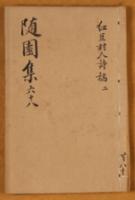 紅豆村人詩稿二
随園集六十八